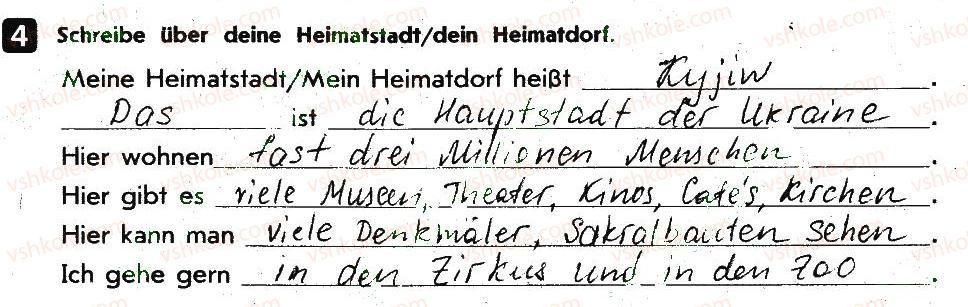 4 Schreibe über deine Heimatstadt/dein Heimatdorf.
Meine Heimatstadt/Mein Heimatdorf heißt Kyjiw.
Das ist die Hauptstadt der Ukraine.
Hier wohnen fast drei Millionen Menschen.
Hier gibt es viele Museen, Theater, Kinos, Cafe's, Kirchen.
Hier kann man viele Denkmäler, Sakralbauten sehen.
Ich gehe gern in den Zirkus und in den Zoo.